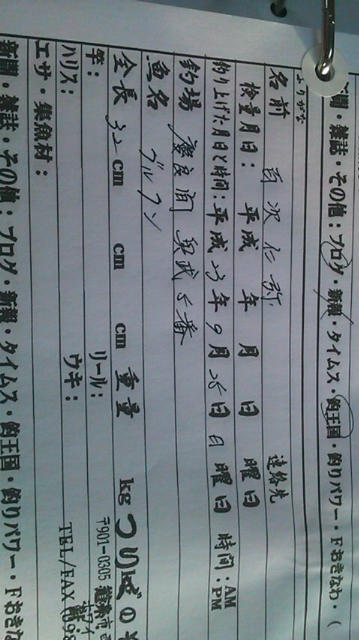 聞・雑誌・その他：ブログ・新報・タイムス・釣王国・釣りパワー・Fおきなわ・（
ふりがな
名前 連絡先
検量月日： 平成 年 月 日 曜日
釣り上げた月日と時間：平成23年9月25日 日曜日 時間：AM PM
釣場 慶良間
魚名 グルクン
全長 32 cm cm cm 重量 kg つり具の
竿： リール： 〒901-0305 糸満市
ハリス： ウキ： TEL/FAX (098
エサ・集魚材：
新聞・雑誌・その他：ブログ・新報・タイムス・釣王国・釣りパワー・Fおきな